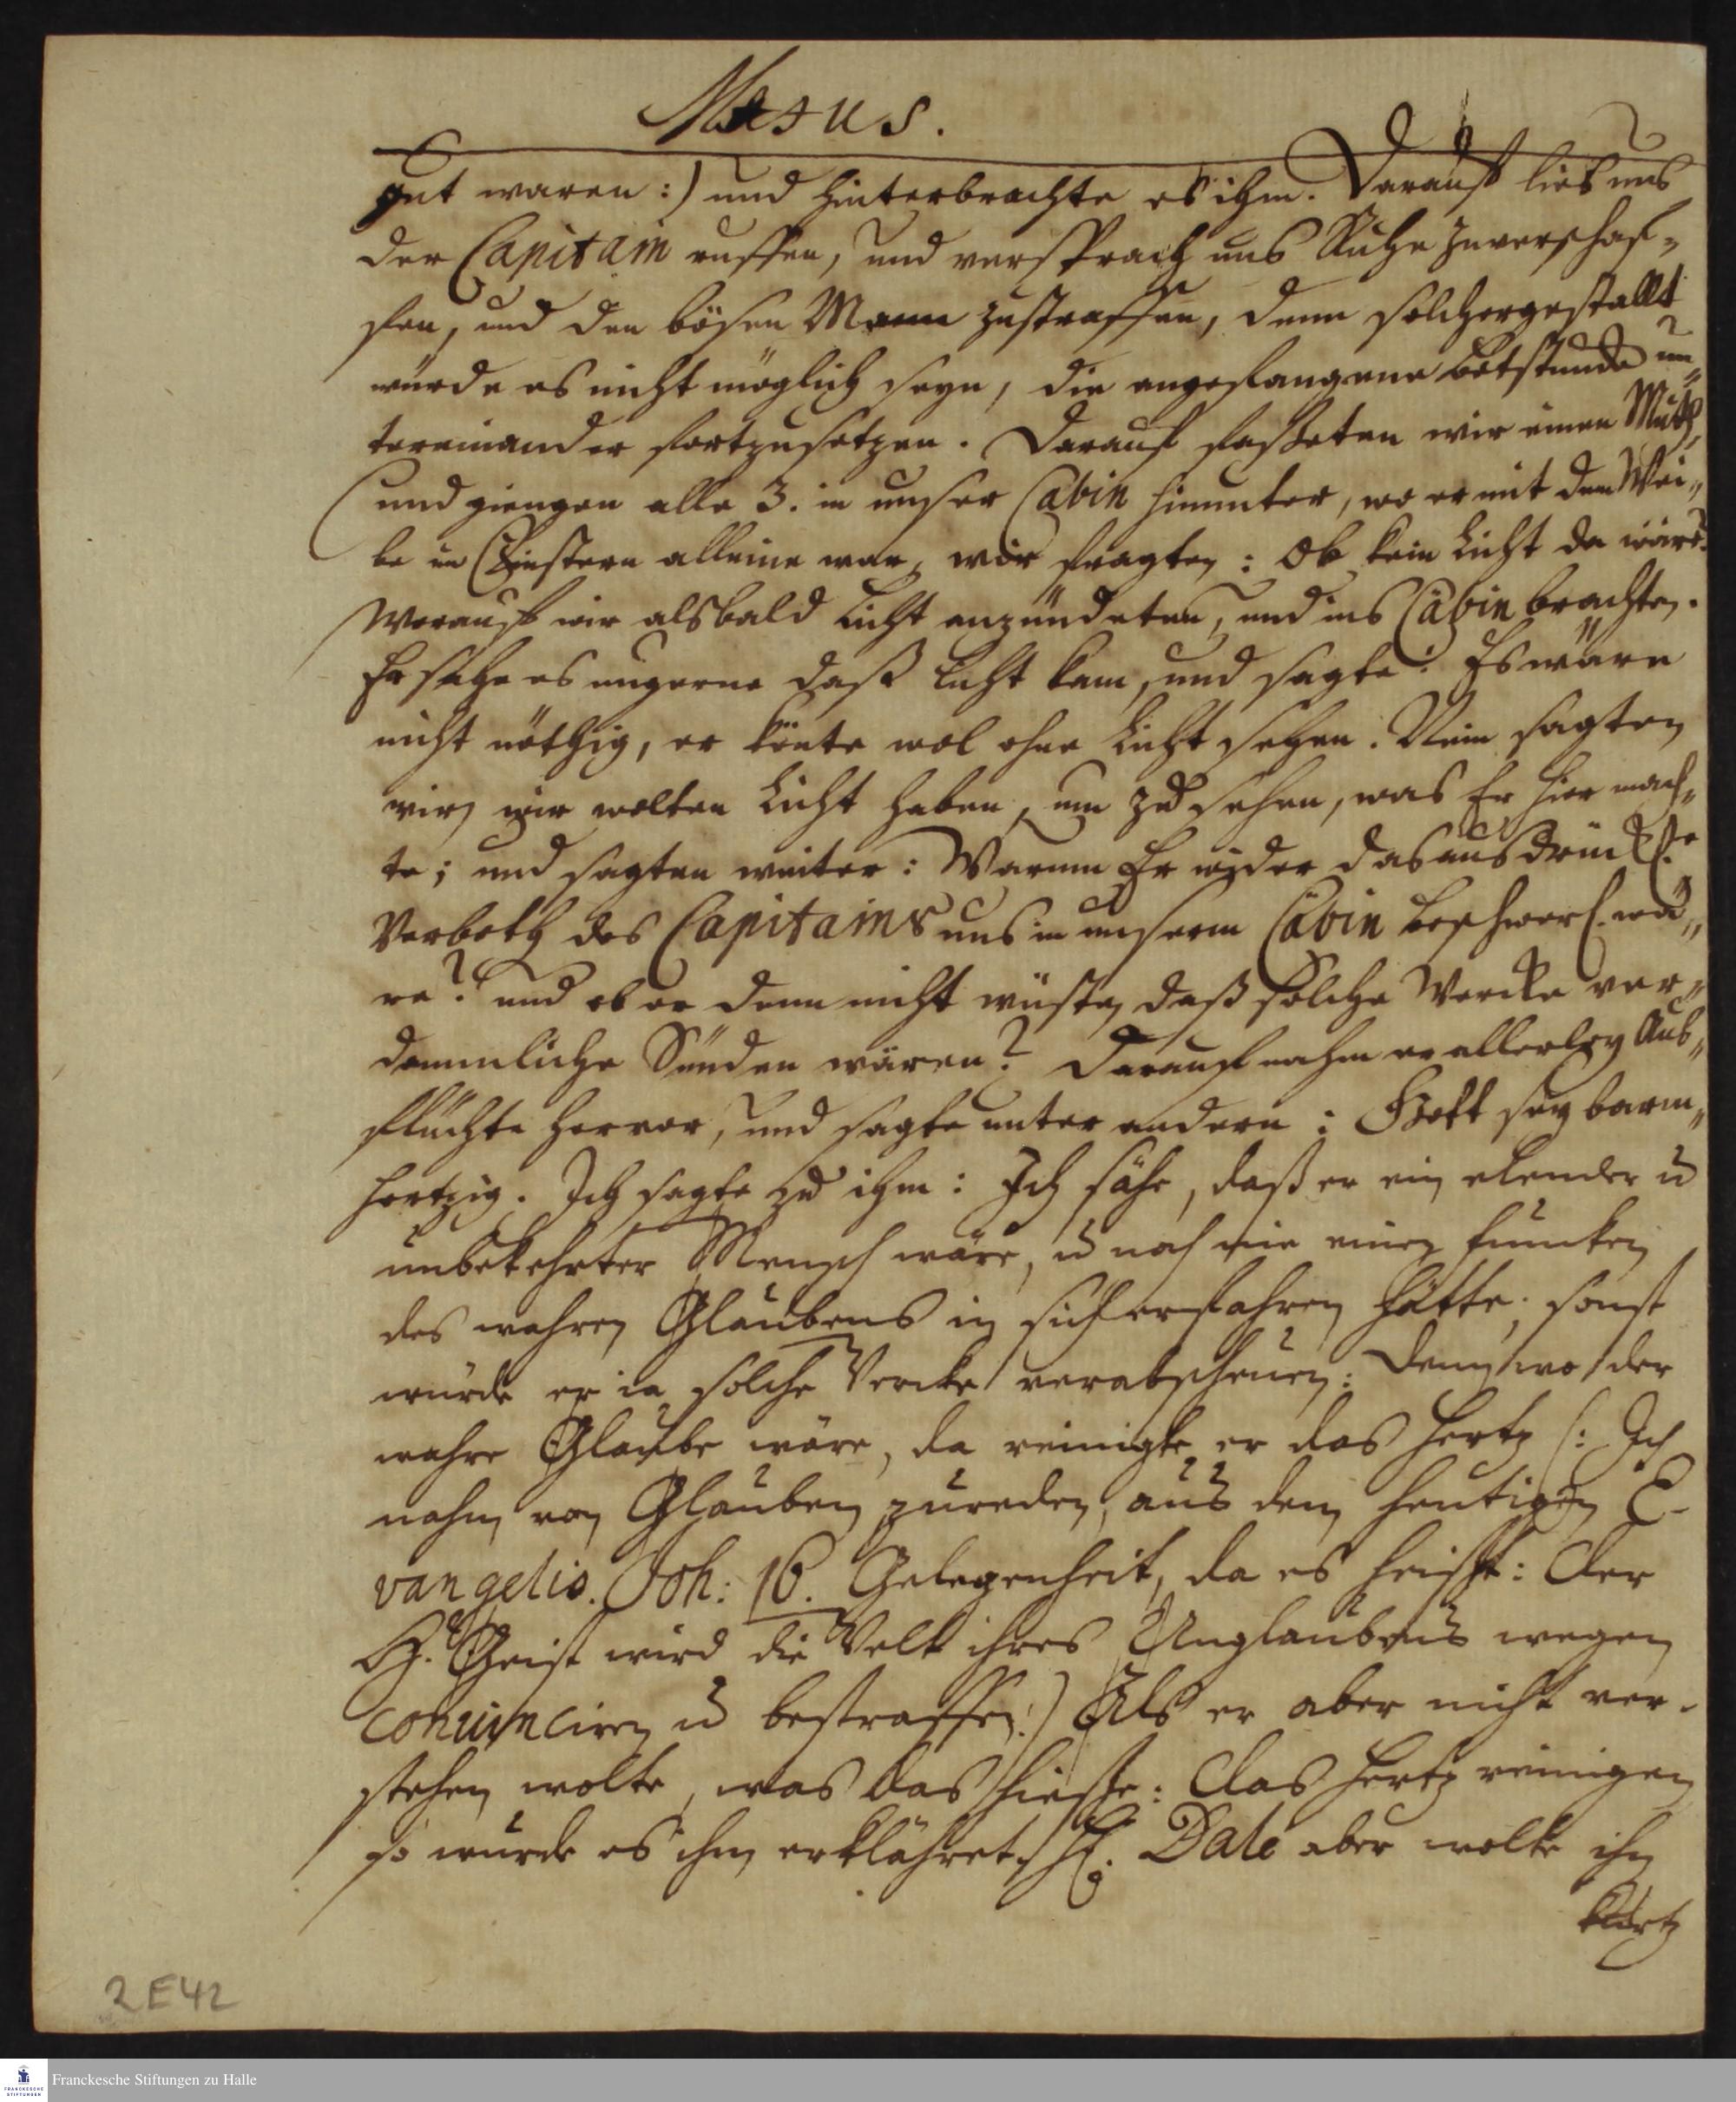 Majus.
gut waren :) und hinterbrachte es ihm. Darauff ließ uns
der Capitain ruffen, und versprach uns Ruhe zuverschaf-
fen, und den bösen Mann zustraffen, denn solchergestallt
würde es nicht möglich seyn, die angefangene Betstunde un-
tereinander fortzusetzen. Darauf fasseten wir einen Muth,
und giengen alle 3. in unser Cabin hinunter, wo er mit dem Wei-
be im Finstern alleine war, wir fragten: Ob kein Licht da wäre?
Worauff wir alsbald Licht anzündeten, und ins Cabin brachten.
Er sahe es ungerne daß Licht kam, und sagte: Es wäre
nicht nöthig, er könte wol ohne Licht sehen. Nein sagten
wir, wir wolten Licht haben, um zu sehen, was Er hier mach-
te; und sagten weiter: Warum Er wider das ausdrückl.
Verboth des Capitains uns in unserm Cabin beschwerl. wä-
re? und ob er denn nicht wüste, daß solche Wercke ver-
dammliche Sünden wären? Darauf nahm er allerley Aus-
flüchte hervor, und sagte unter andern: Gott sey barm-
hertzig. Ich sagte zu ihm: Ich sähe, daß er ein elender u
unbekehrter Mensch wäre, u noch nie einen Funcken
des wahren Glaubens in sich erfahren hätte; sonst
würde er ja solche Wercke verabscheuen: Denn wo der
wahre Glaube wäre, da reinigte er das Hertz (: Ich
nahm von Glauben zureden, aus dem heutigen E-
vangelio. Joh: 16. Gelegenheit, da es heisst: der
H. Geist wird die Welt ihres Unglaubens wegen
convinciren u bestraffen:) Als er aber nicht ver-
stehen wolte, was das hiesse: das Hertz reinigen
so wurde es ihm erklähret. H. Dale aber wolte ihn
kurtz
2 E 42
Franckesche Stiftungen zu Halle
FRANCKESCHE
STIFTUNGEN